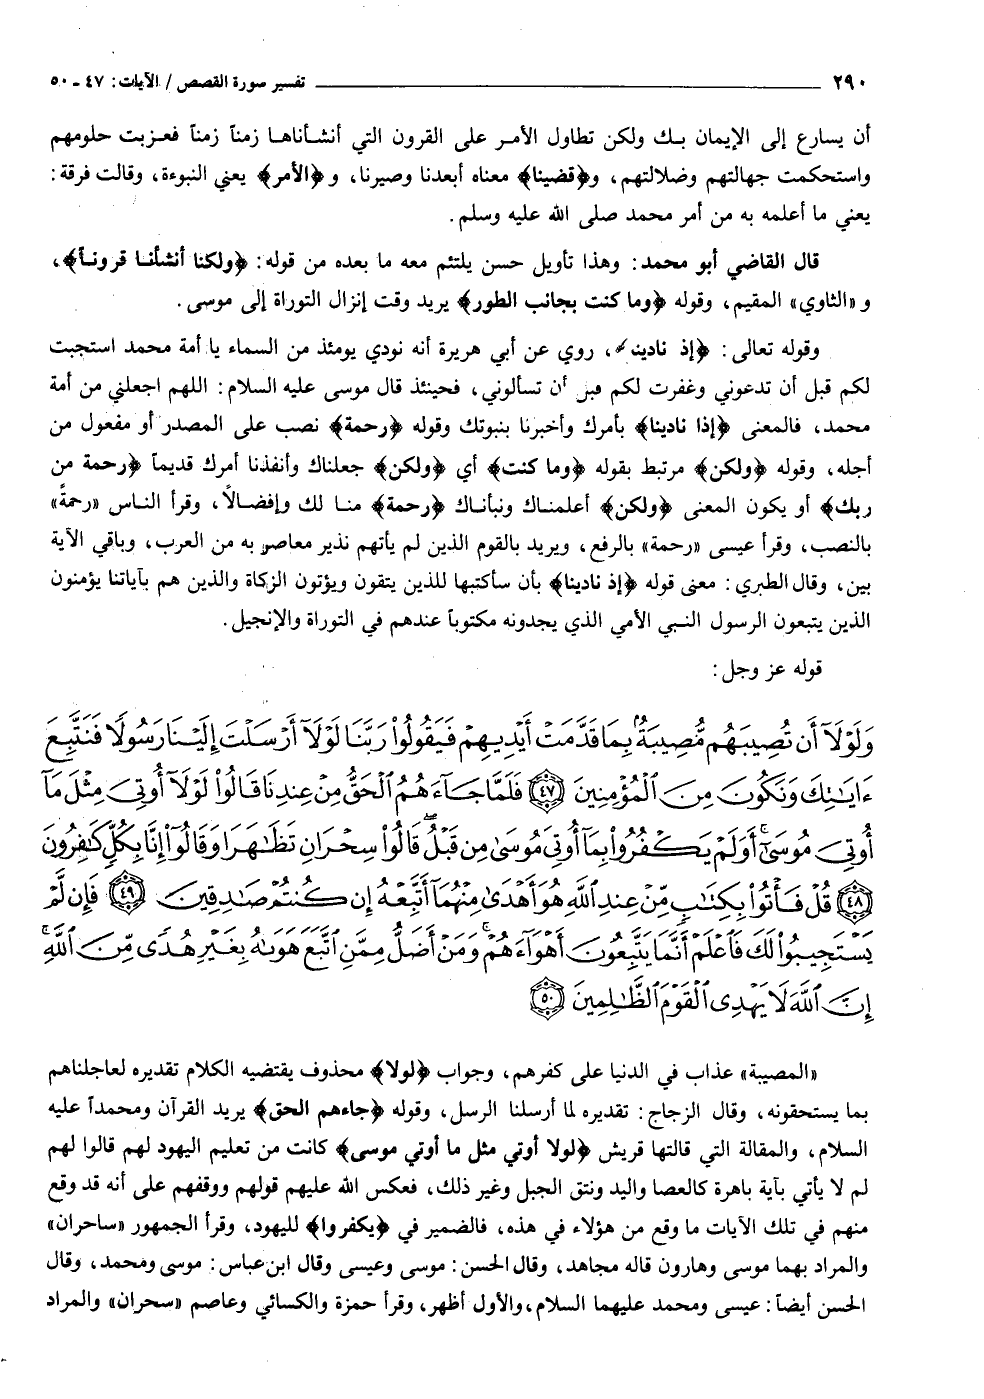 ٢٩٠ تفسير سورة القصص / الآيات: ٤٧ - ٥٠
أن يسارع إلى الإيمان بك ولكن تطاول الأمر على القرون التي أنشأناها زمناً زمناً فعزبت حلومهم
واستحكمت جهالتهم وضلالتهم، و﴿قضينا﴾ معناه أبعدنا وصيرنا، و﴿الأمر﴾ يعني النبوءة، وقالت فرقة:
يعني ما أعلمه به من أمر محمد صلى الله عليه وسلم.
قال القاضي أبو محمد: وهذا تأويل حسن يلتئم معه ما بعده من قوله: ﴿ولكنا أنشأنا قروناً﴾،
و «الثاوي» المقيم، وقوله ﴿وما كنت بجانب الطور﴾ يريد وقت إنزال التوراة إلى موسى.
وقوله تعالى: ﴿إذ نادينا﴾، روي عن أبي هريرة أنه نودي يومئذ من السماء يا أمة محمد استجبت
لكم قبل أن تدعوني وغفرت لكم قبل أن تسألوني، فحينئذ قال موسى عليه السلام: اللهم اجعلني من أمة
محمد، فالمعنى ﴿إذا نادينا﴾ بأمرك وأخبرنا بنبوتك وقوله ﴿رحمة﴾ نصب على المصدر أو مفعول من
أجله، وقوله ﴿ولكن﴾ مرتبط بقوله ﴿وما كنت﴾ أي ﴿ولكن﴾ جعلناك وأنفذنا أمرك قديماً ﴿رحمة من
ربك﴾ أو يكون المعنى ﴿ولكن﴾ أعلمناك ونبأناك ﴿رحمة﴾ منا لك وإفضالاً، وقرأ الناس «رحمةً»
بالنصب، وقرأ عيسى «رحمة» بالرفع، ويريد بالقوم الذين لم يأتهم نذير معاصر به من العرب، وباقي الآية
بين، وقال الطبري: معنى قوله ﴿إذ نادينا﴾ بأن سأكتبها للذين يتقون ويؤتون الزكاة والذين هم بآياتنا يؤمنون
الذين يتبعون الرسول النبي الأمي الذي يجدونه مكتوباً عندهم في التوراة والإنجيل.
قوله عز وجل:
وَلَوْلَآ أَن تُصِيبَهُم مُّصِيبَةٌۢ بِمَا قَدَّمَتْ أَيْدِيهِمْ فَيَقُولُوا۟ رَبَّنَا لَوْلَآ أَرْسَلْتَ إِلَيْنَا رَسُولًا فَنَتَّبِعَ
ءَايَـٰتِكَ وَنَكُونَ مِنَ ٱلْمُؤْمِنِينَ ﴿٤٧﴾ فَلَمَّا جَآءَهُمُ ٱلْحَقُّ مِنْ عِندِنَا قَالُوا۟ لَوْلَآ أُوتِىَ مِثْلَ مَآ
أُوتِىَ مُوسَىٰٓ ۚ أَوَلَمْ يَكْفُرُوا۟ بِمَآ أُوتِىَ مُوسَىٰ مِن قَبْلُ ۖ قَالُوا۟ سِحْرَانِ تَظَـٰهَرَا وَقَالُوٓا۟ إِنَّا بِكُلٍّ كَـٰفِرُونَ
﴿٤٨﴾ قُلْ فَأْتُوا۟ بِكِتَـٰبٍ مِّنْ عِندِ ٱللَّهِ هُوَ أَهْدَىٰ مِنْهُمَآ أَتَّبِعْهُ إِن كُنتُمْ صَـٰدِقِينَ ﴿٤٩﴾ فَإِن لَّمْ
يَسْتَجِيبُوا۟ لَكَ فَٱعْلَمْ أَنَّمَا يَتَّبِعُونَ أَهْوَآءَهُمْ ۚ وَمَنْ أَضَلُّ مِمَّنِ ٱتَّبَعَ هَوَىٰهُ بِغَيْرِ هُدًى مِّنَ ٱللَّهِ ۚ
إِنَّ ٱللَّهَ لَا يَهْدِى ٱلْقَوْمَ ٱلظَّـٰلِمِينَ ﴿٥٠﴾
«المصيبة» عذاب في الدنيا على كفرهم، وجواب ﴿لولا﴾ محذوف يقتضيه الكلام تقديره لعاجلناهم
بما يستحقونه، وقال الزجاج: تقديره لما أرسلنا الرسل، وقوله ﴿جاءهم الحق﴾ يريد القرآن ومحمداً عليه
السلام، والمقالة التي قالتها قريش ﴿لولا أوتي مثل ما أوتي موسى﴾ كانت من تعليم اليهود لهم قالوا لهم
لم لا يأتي بآية باهرة كالعصا واليد ونتق الجبل وغير ذلك، فعكس الله عليهم قولهم ووقفهم على أنه قد وقع
منهم في تلك الآيات ما وقع من هؤلاء في هذه، فالضمير في ﴿يكفروا﴾ لليهود، وقرأ الجمهور «ساحران»
والمراد بهما موسى وهارون قاله مجاهد، وقال الحسن: موسى وعيسى وقال ابن عباس: موسى ومحمد، وقال
الحسن أيضاً: عيسى ومحمد عليهما السلام، والأول أظهر، وقرأ حمزة والكسائي وعاصم «سحران» والمراد